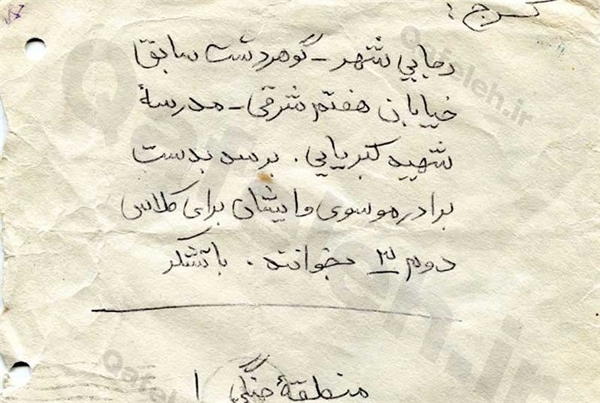 کرج:
رجایی شهر - گوهردشت سابق
خیابان هفتم شرقی - مدرسهٔ
شهید کبریایی. برسد بدست
برادر موسوی و ایشان برای کلاس
دوم ۳ بخوانند. با تشکر
منطقهٔ جنگی
Qafeleh.ir